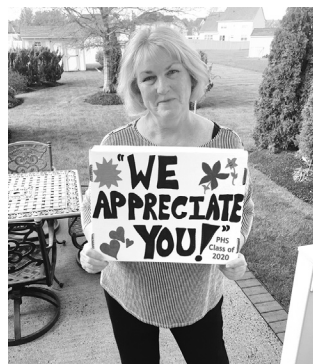 "WE
APPRECIATE
YOU!"
PHS
Class of
2020